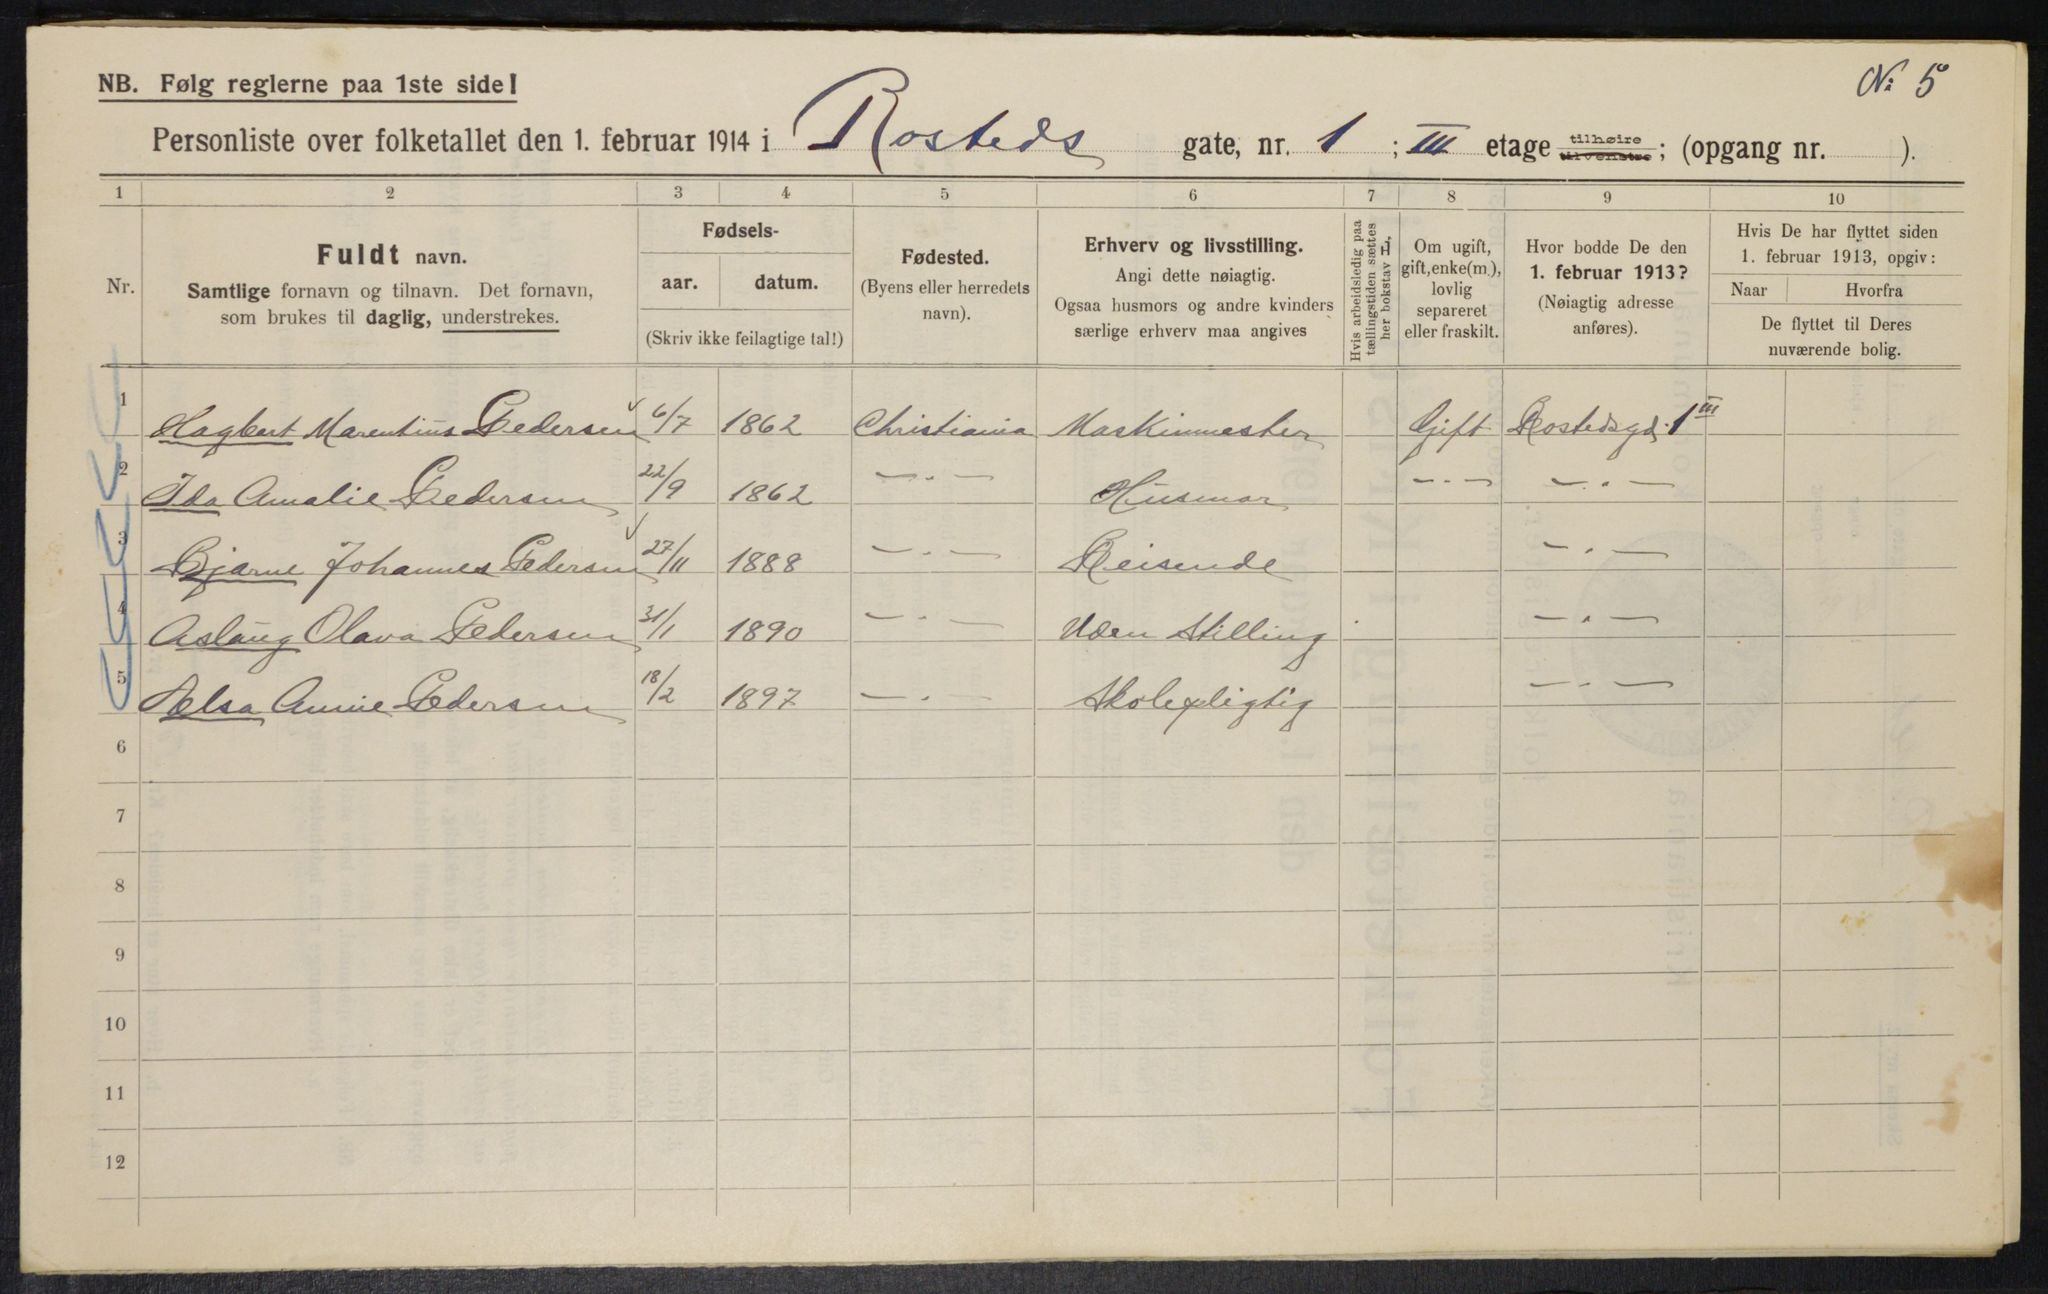 NB. Følg reglerne paa 1ste side!
No 5
Personliste over folketallet den 1. februar 1914 i Rosteds gate, nr. 1 ; III etage tilhøire tilvenstre; (opgang nr. ).
1 2 3 4 5 6 7 8 9 10
Nr.
Fuldt navn.
Samtlige fornavn og tilnavn. Det fornavn,
som brukes til daglig, understrekes.
Fødsels-
aar. datum.
(Skriv ikke feilagtige tal!)
Fødested.
(Byens eller herredets
navn).
Erhverv og livsstilling.
Angi dette nøiagtig.
Ogsaa husmors og andre kvinders
særlige erhverv maa angives
Hvis arbeidsledig paa
tællingstiden sættes
her bokstav L.
Om ugift,
gift, enke(m.),
lovlig
separeret
eller fraskilt.
Hvor bodde De den
1. februar 1913?
(Nøiagtig adresse
anføres).
Hvis De har flyttet siden
1. februar 1913, opgiv:
Naar Hvorfra
De flyttet til Deres
nuværende bolig.
1 Hagbert Marentius Pedersen 6/7 1862 Christiania Maskinmester Gift Rostedsgd. 1 III
2 Ida Amalie Pedersen 22/9 1862 — " — Husmor — " — — " —
3 Bjarne Johannes Pedersen 27/11 1888 — " — Reisende — " —
4 Aslaug Olava Pedersen 31/1 1890 — " — Uden Stilling — " —
5 Aelsa Annie Pedersen 18/2 1897 — " — Skolepligtig — " —
6
7
8
9
10
11
12